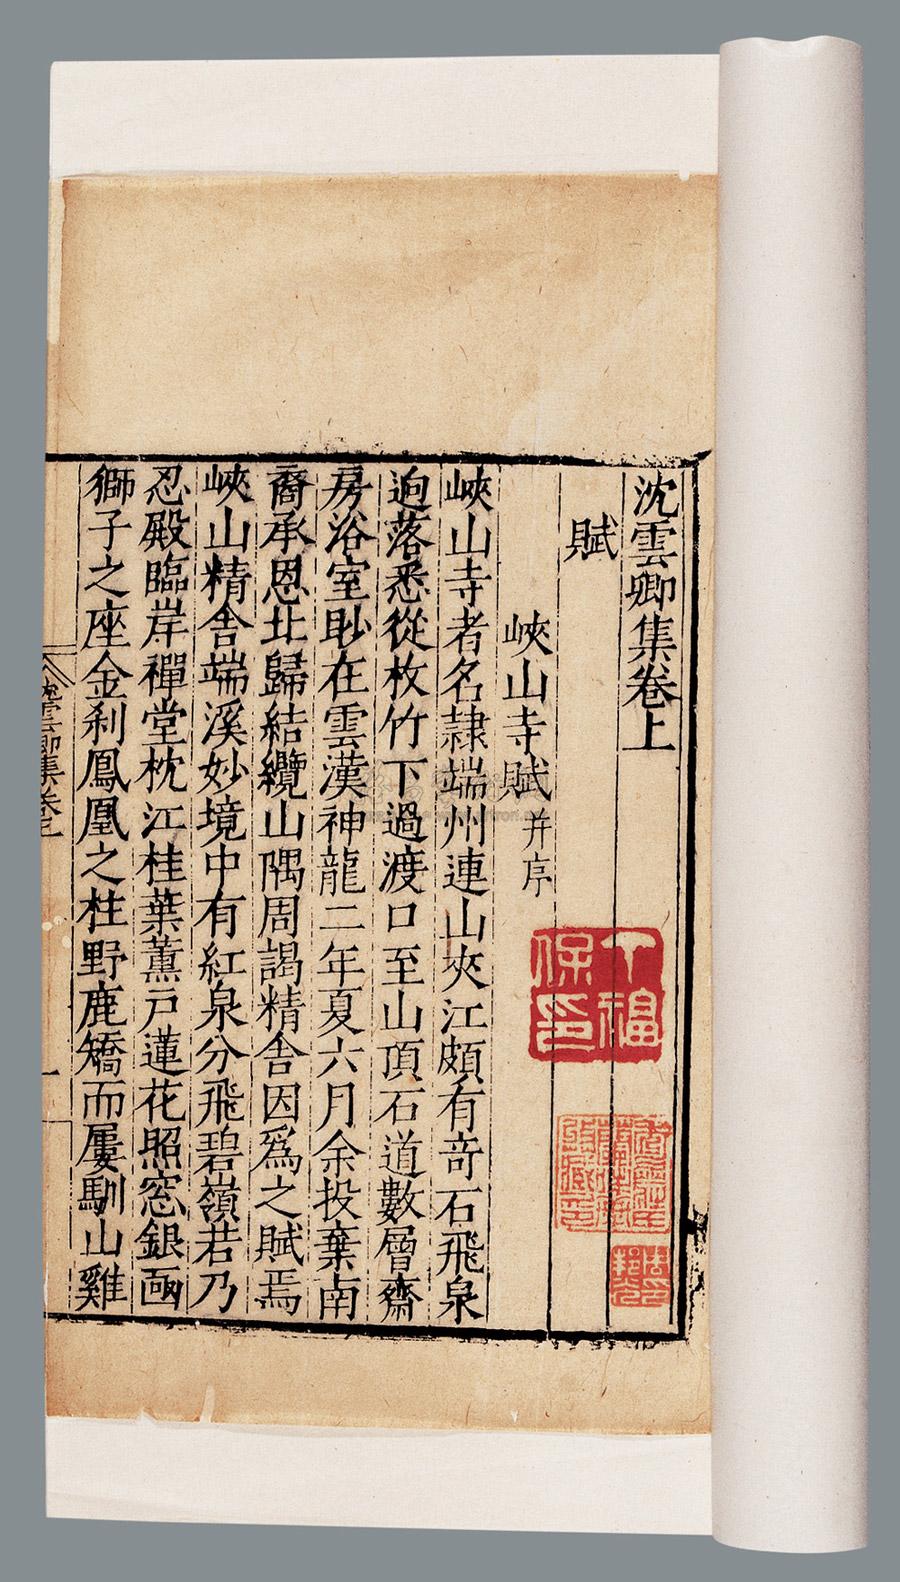 沈雲卿集卷上
賦
峽山寺賦并序
峽山寺者名隷端州連山夾江頗有竒石飛泉
逈落悉從枚竹下過渡口至山頂石道數層齋
房浴室眇在雲漢神龍二年夏六月余投棄南
裔承恩北歸結纜山隅周謁精舍因爲之賦焉
峽山精舍端溪妙境中有紅泉分飛碧嶺若乃
忍殿臨岸禪堂枕江桂葉薰戸蓮花照窓銀𠚖
獅子之座金刹鳳凰之柱野鹿矯而屢馴山雞
沈雲卿集卷上
一
丁福
保印